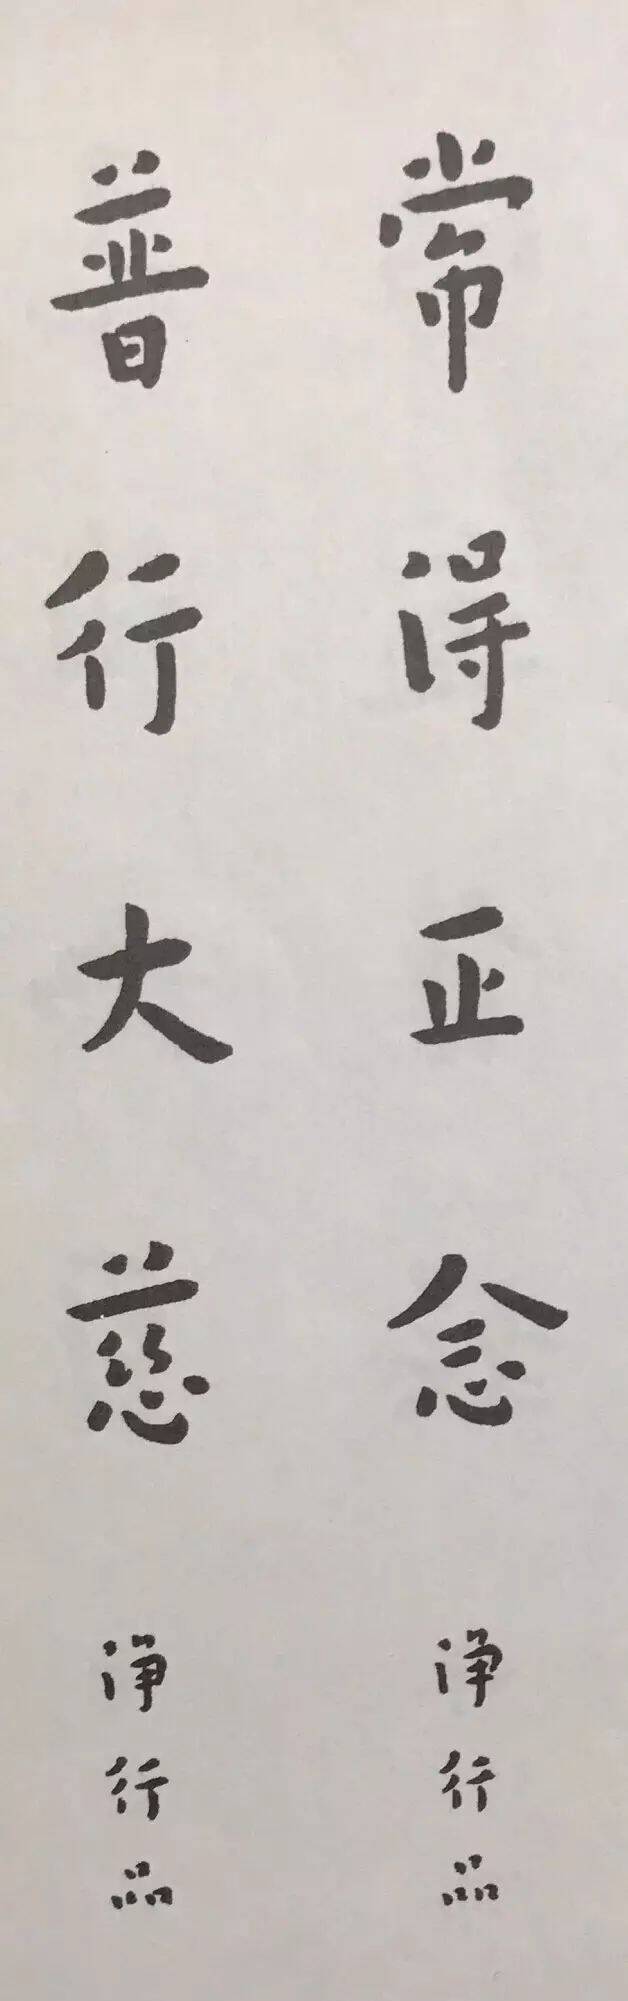 常得正念
淨行品
普行大慈
淨行品